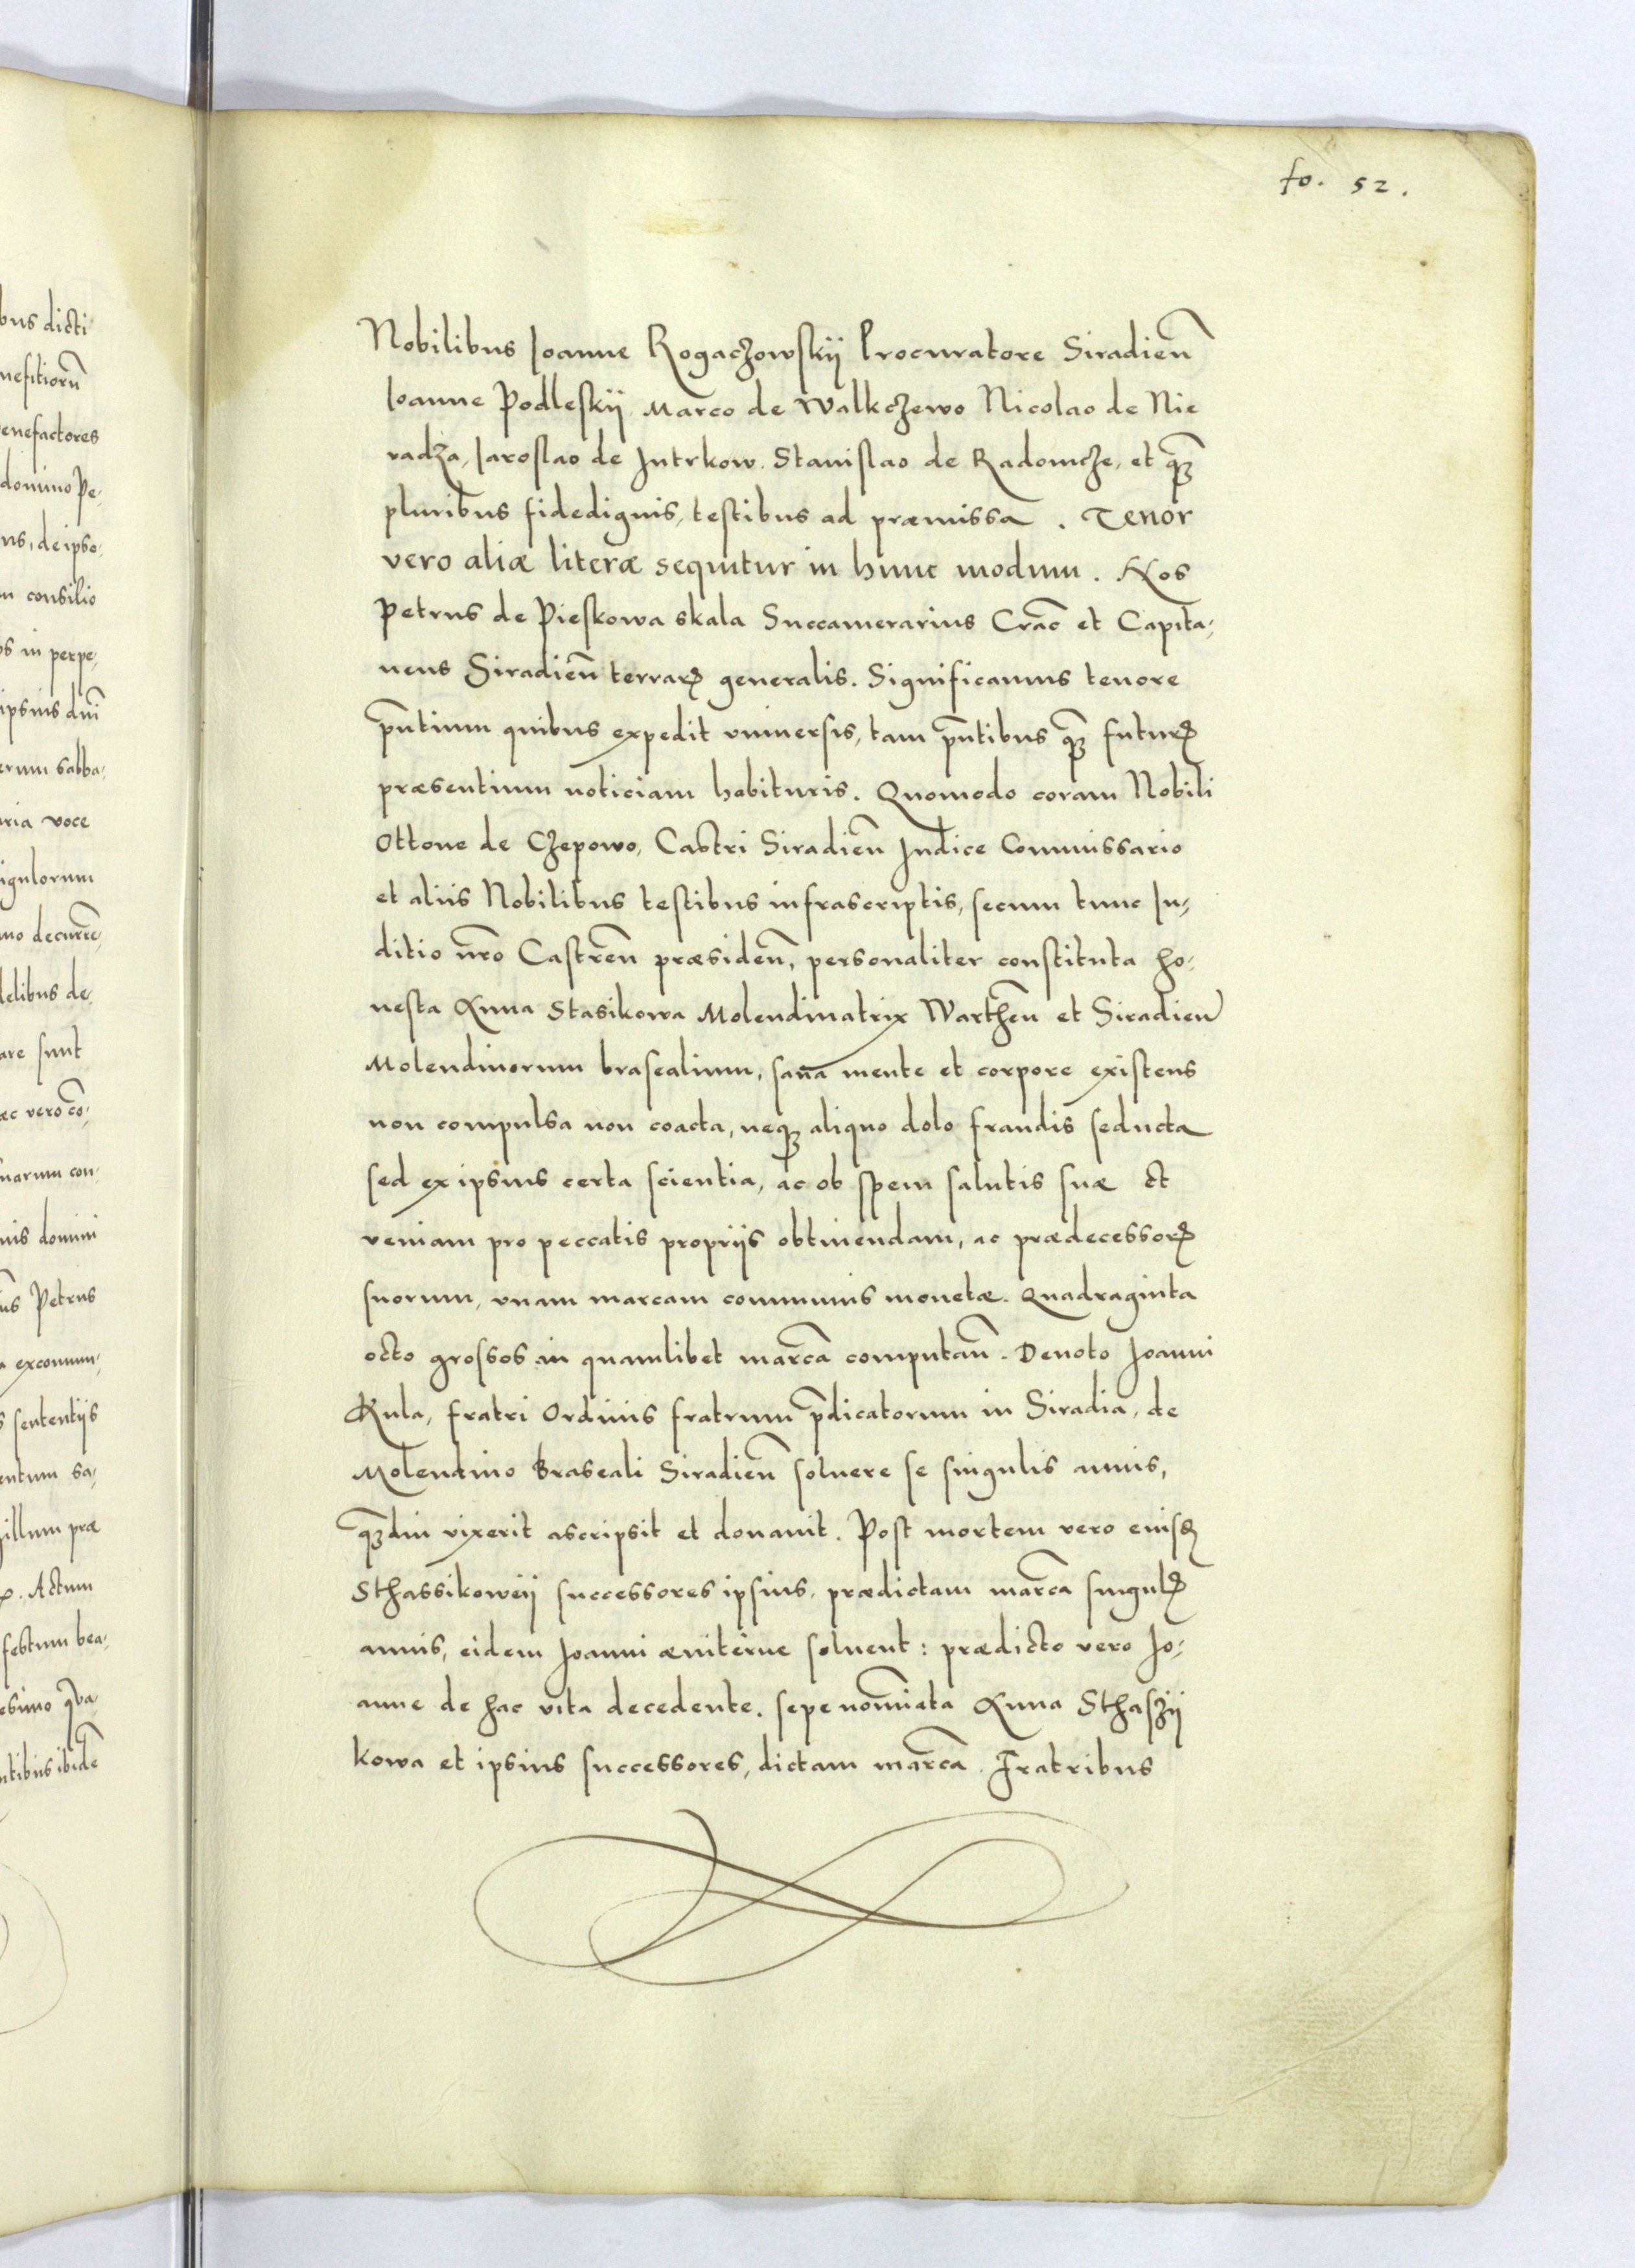 fo. 52.
Nobilibus Joanne Rogaczowskij Procuratore Siradieñ
Joanne Podleskij Marco de Walkczewo Nicolao de Nie
radza, Jaroslao de Jutrkow. Stanislao de Radomcze, et qꝫ
pluribus fidedignis, testibus ad præmissa. Tenor
vero aliæ literæ sequitur in hunc modum. Nos
Petrus de Pieskowa skala Succamerarius Crac̃ et Capita-
neus Siradieñ terrarꝫ generalis. Significamus tenore
pñtium quibus expedit vniuersis, tam pñtibus qꝫ futurꝫ
præsentium noticiam habituris. Quomodo coram Nobili
Ottone de Czepowo, Castri Siradieñ Judice Commissario
et aliis Nobilibus testibus infrascriptis, secum tunc Ju-
ditio nr̃o Castreñ præsideñ, personaliter constituta ho-
nesta Anna Stasikowa Molendinatrix Wartheñ et Siradieñ
Molendinorum brasealium, sana mente et corpore existens
non compulsa non coacta, neqꝫ aliquo dolo fraudis seducta
sed ex ipsius certa scientia, ac ob spem salutis suæ et
veniam pro peccatis propriis obtinendam, ac prædecessorꝫ
suorum, vnam marcam communis monetæ. Quadraginta
octo grossos in quamlibet marcã computañ. Deuoto Joanni
Kula, fratri Ordinis fratrum p̃dicatorum in Siradia, de
Molendino Braseali Siradieñ soluere se singulis annis,
qꝫdiu vixerit ascripsit et donauit. Post mortem vero eiusꝫ
Sthassikoweij successores ipsius, prædictam marcã singulꝫ
annis, eidem Joanni æuiterne soluent: prædicto vero Jo-
anne de hac vita decedente. sepe nominata Anna Sthaszij
kowa et ipsius successores, dictam marcã Fratribus